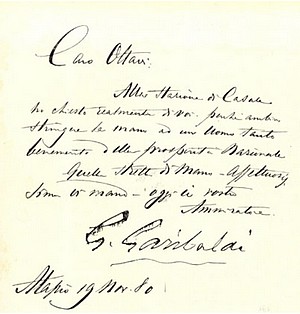 Caro Ottavi:
Alla stazione di Casale
ho chiesto realmente di voi, perché ambivo
stringere la mano ad un Uomo tanto
benemerito della prosperità Nazionale
Quella stretta di Mano
vi mando oggi il vostro
Ammiratore.
G. Garibaldi
19 Nov. 80